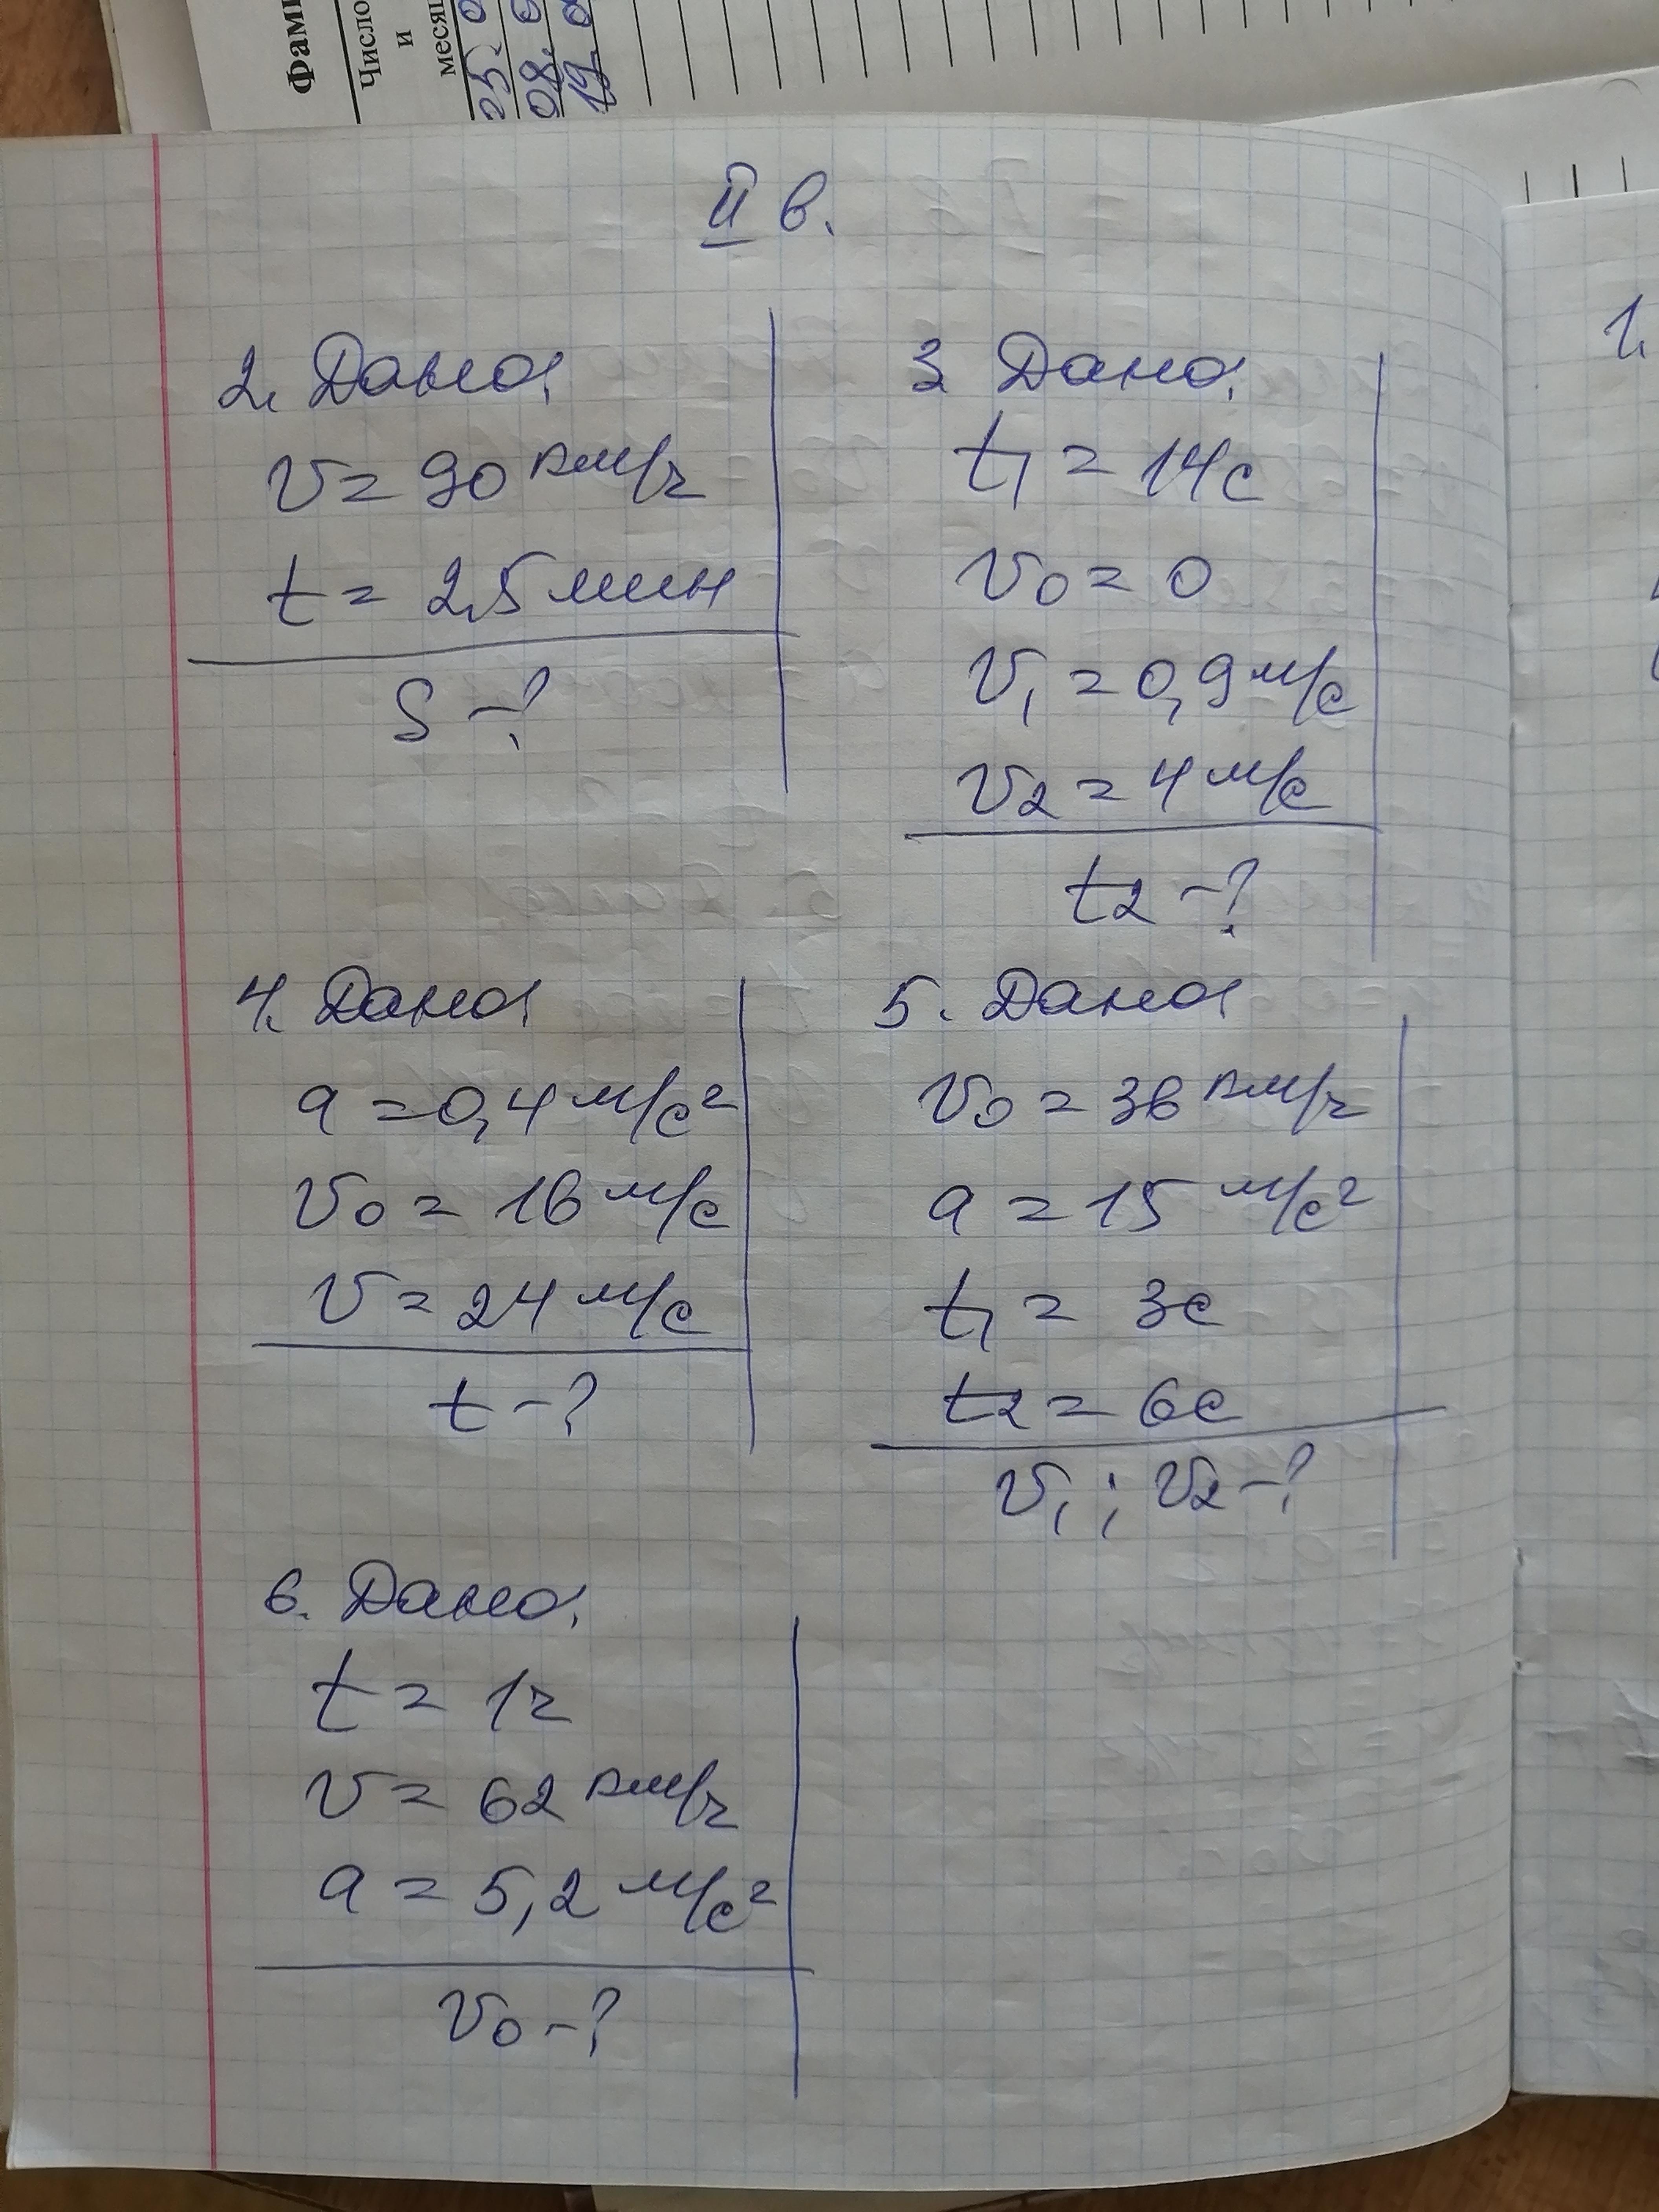 Фами
Число
и
месяц
25. 0
08. 0
19. 0
II в.
2. Дано:
v = 90 км/ч
t = 2,5 мин
S - ?
3. Дано:
t1 = 14 с
v0 = 0
v1 = 0,9 м/с
v2 = 4 м/с
t2 - ?
4. Дано:
a = 0,4 м/с²
v0 = 16 м/с
v = 24 м/с
t - ?
5. Дано:
v0 = 36 км/ч
a = 15 м/с²
t1 = 3 с
t2 = 6 с
v1; v2 - ?
6. Дано:
t = 1 ч
v = 62 км/ч
a = 5,2 м/с²
v0 - ?
1.